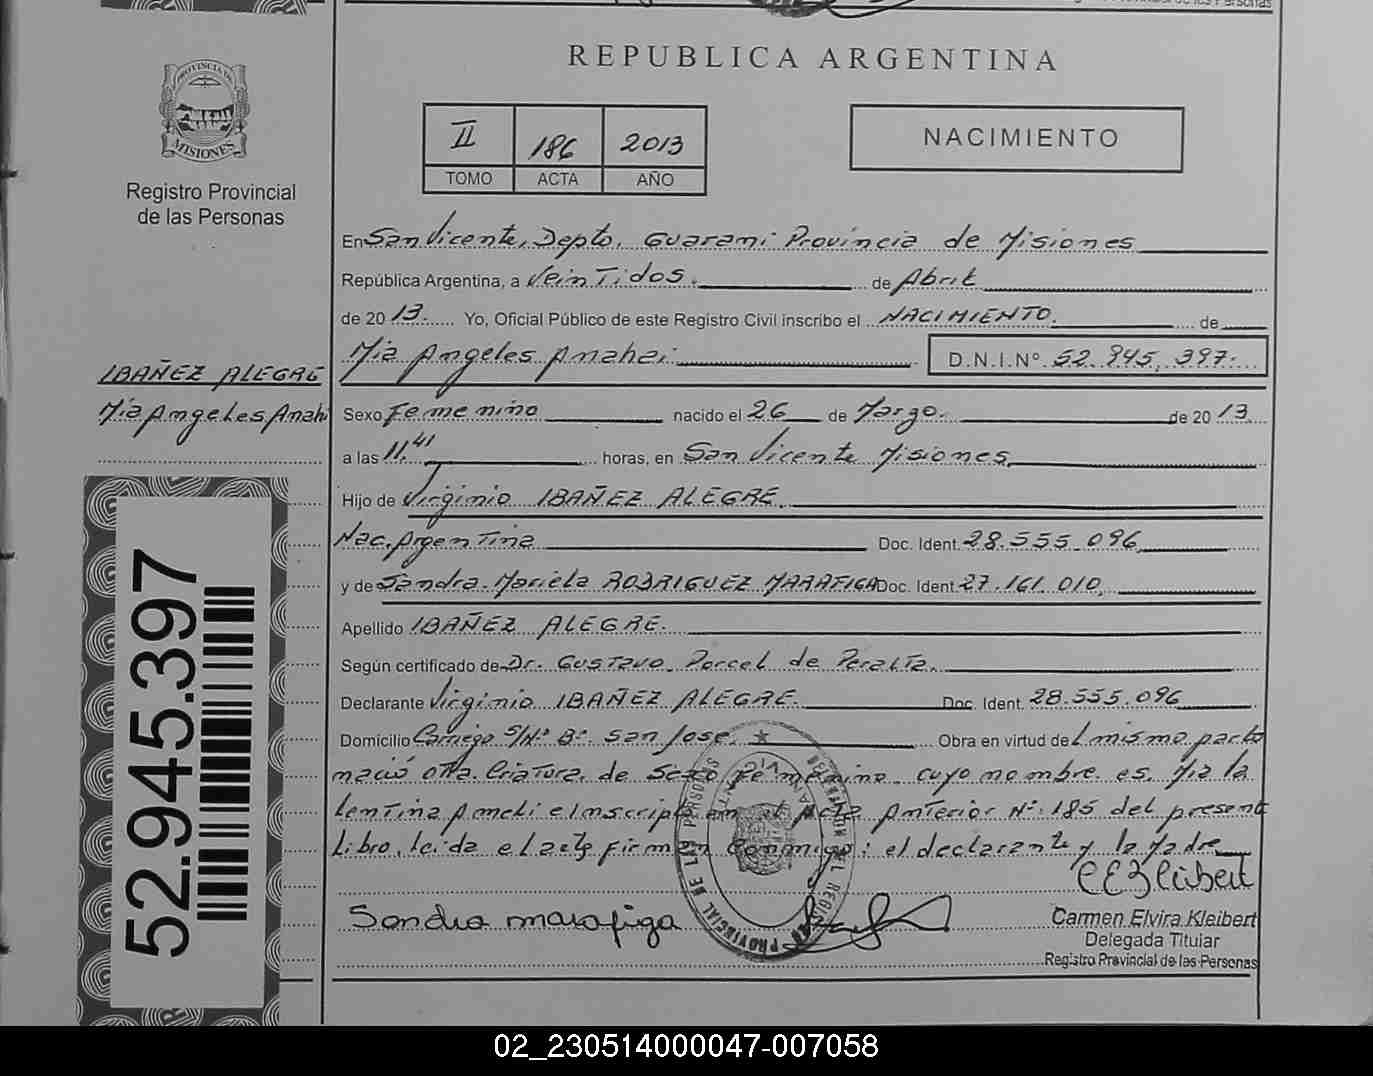 REPUBLICA ARGENTINA
PROVINCIA DE
MISIONES
Registro Provincial
de las Personas
II 186 2013
TOMO ACTA AÑO
NACIMIENTO
En San Vicente, Depto, Guarani Provincia de Misiones
República Argentina, a VeinTidos. de Abril
de 20 13. Yo, Oficial Público de este Registro Civil inscribo el NACIMIENTO. de
Mia Angeles Anahei D.N.I.Nº 52.945.397.
IBAÑEZ ALEGRE
Mia Angeles Anahi
Sexo Femenino nacido el 26 de Marzo. de 20 13.
a las 11.41 horas, en San Vicente Misiones
Hijo de Virginio IBAÑEZ ALEGRE.
Nac. Argentina Doc. Ident. 28.555.096
y de Sandra Mariela RODRIGUEZ MARAFIGA Doc. Ident. 27.161.010
Apellido IBAÑEZ ALEGRE.
Según certificado de Dr. Gustavo Porcel de Peralta.
Declarante Virginio IBAÑEZ ALEGRE. Doc. Ident. 28.555.096
Domicilio Carriego S/Nº Bº San Jose. Obra en virtud del mismo parto
nació otra Criatura de Sexo Femenino cuyo nombre es Mia la
lentina Ameli e Inscripta en el Acta Anterior Nº 185 del present
Libro, leida el acta firman conmigo: el declarante y la Madre
Sondra marafiga
Carmen Elvira Kleibert
Delegada Titular
Registro Provincial de las Personas
52.945.397
02_230514000047-007058